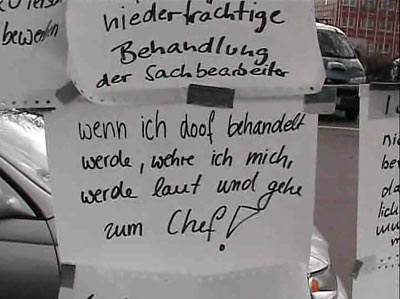 bewerben
niederträchtige
Behandlung
der Sachbearbeiter
wenn ich doof behandelt
werde, wehre ich mich,
werde laut und gehe
zum Chef!